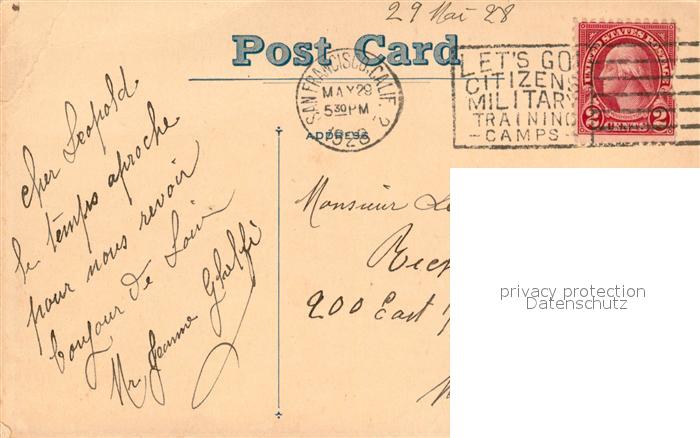 29 Mai 28
Post Card
SAN FRANCISCO, CALIF. 2
MAY 29
5 30 PM
1928
LET'S GO
CITIZENS
MILITARY
TRAINING
CAMPS
UNITED STATES POSTAGE
2 2
ADDRESS
cher Leopold
le temps aproche
pour nous revoir
bonjour de Loin
Mr Jeanne
Monsieur
200 East
privacy protection
Datenschutz